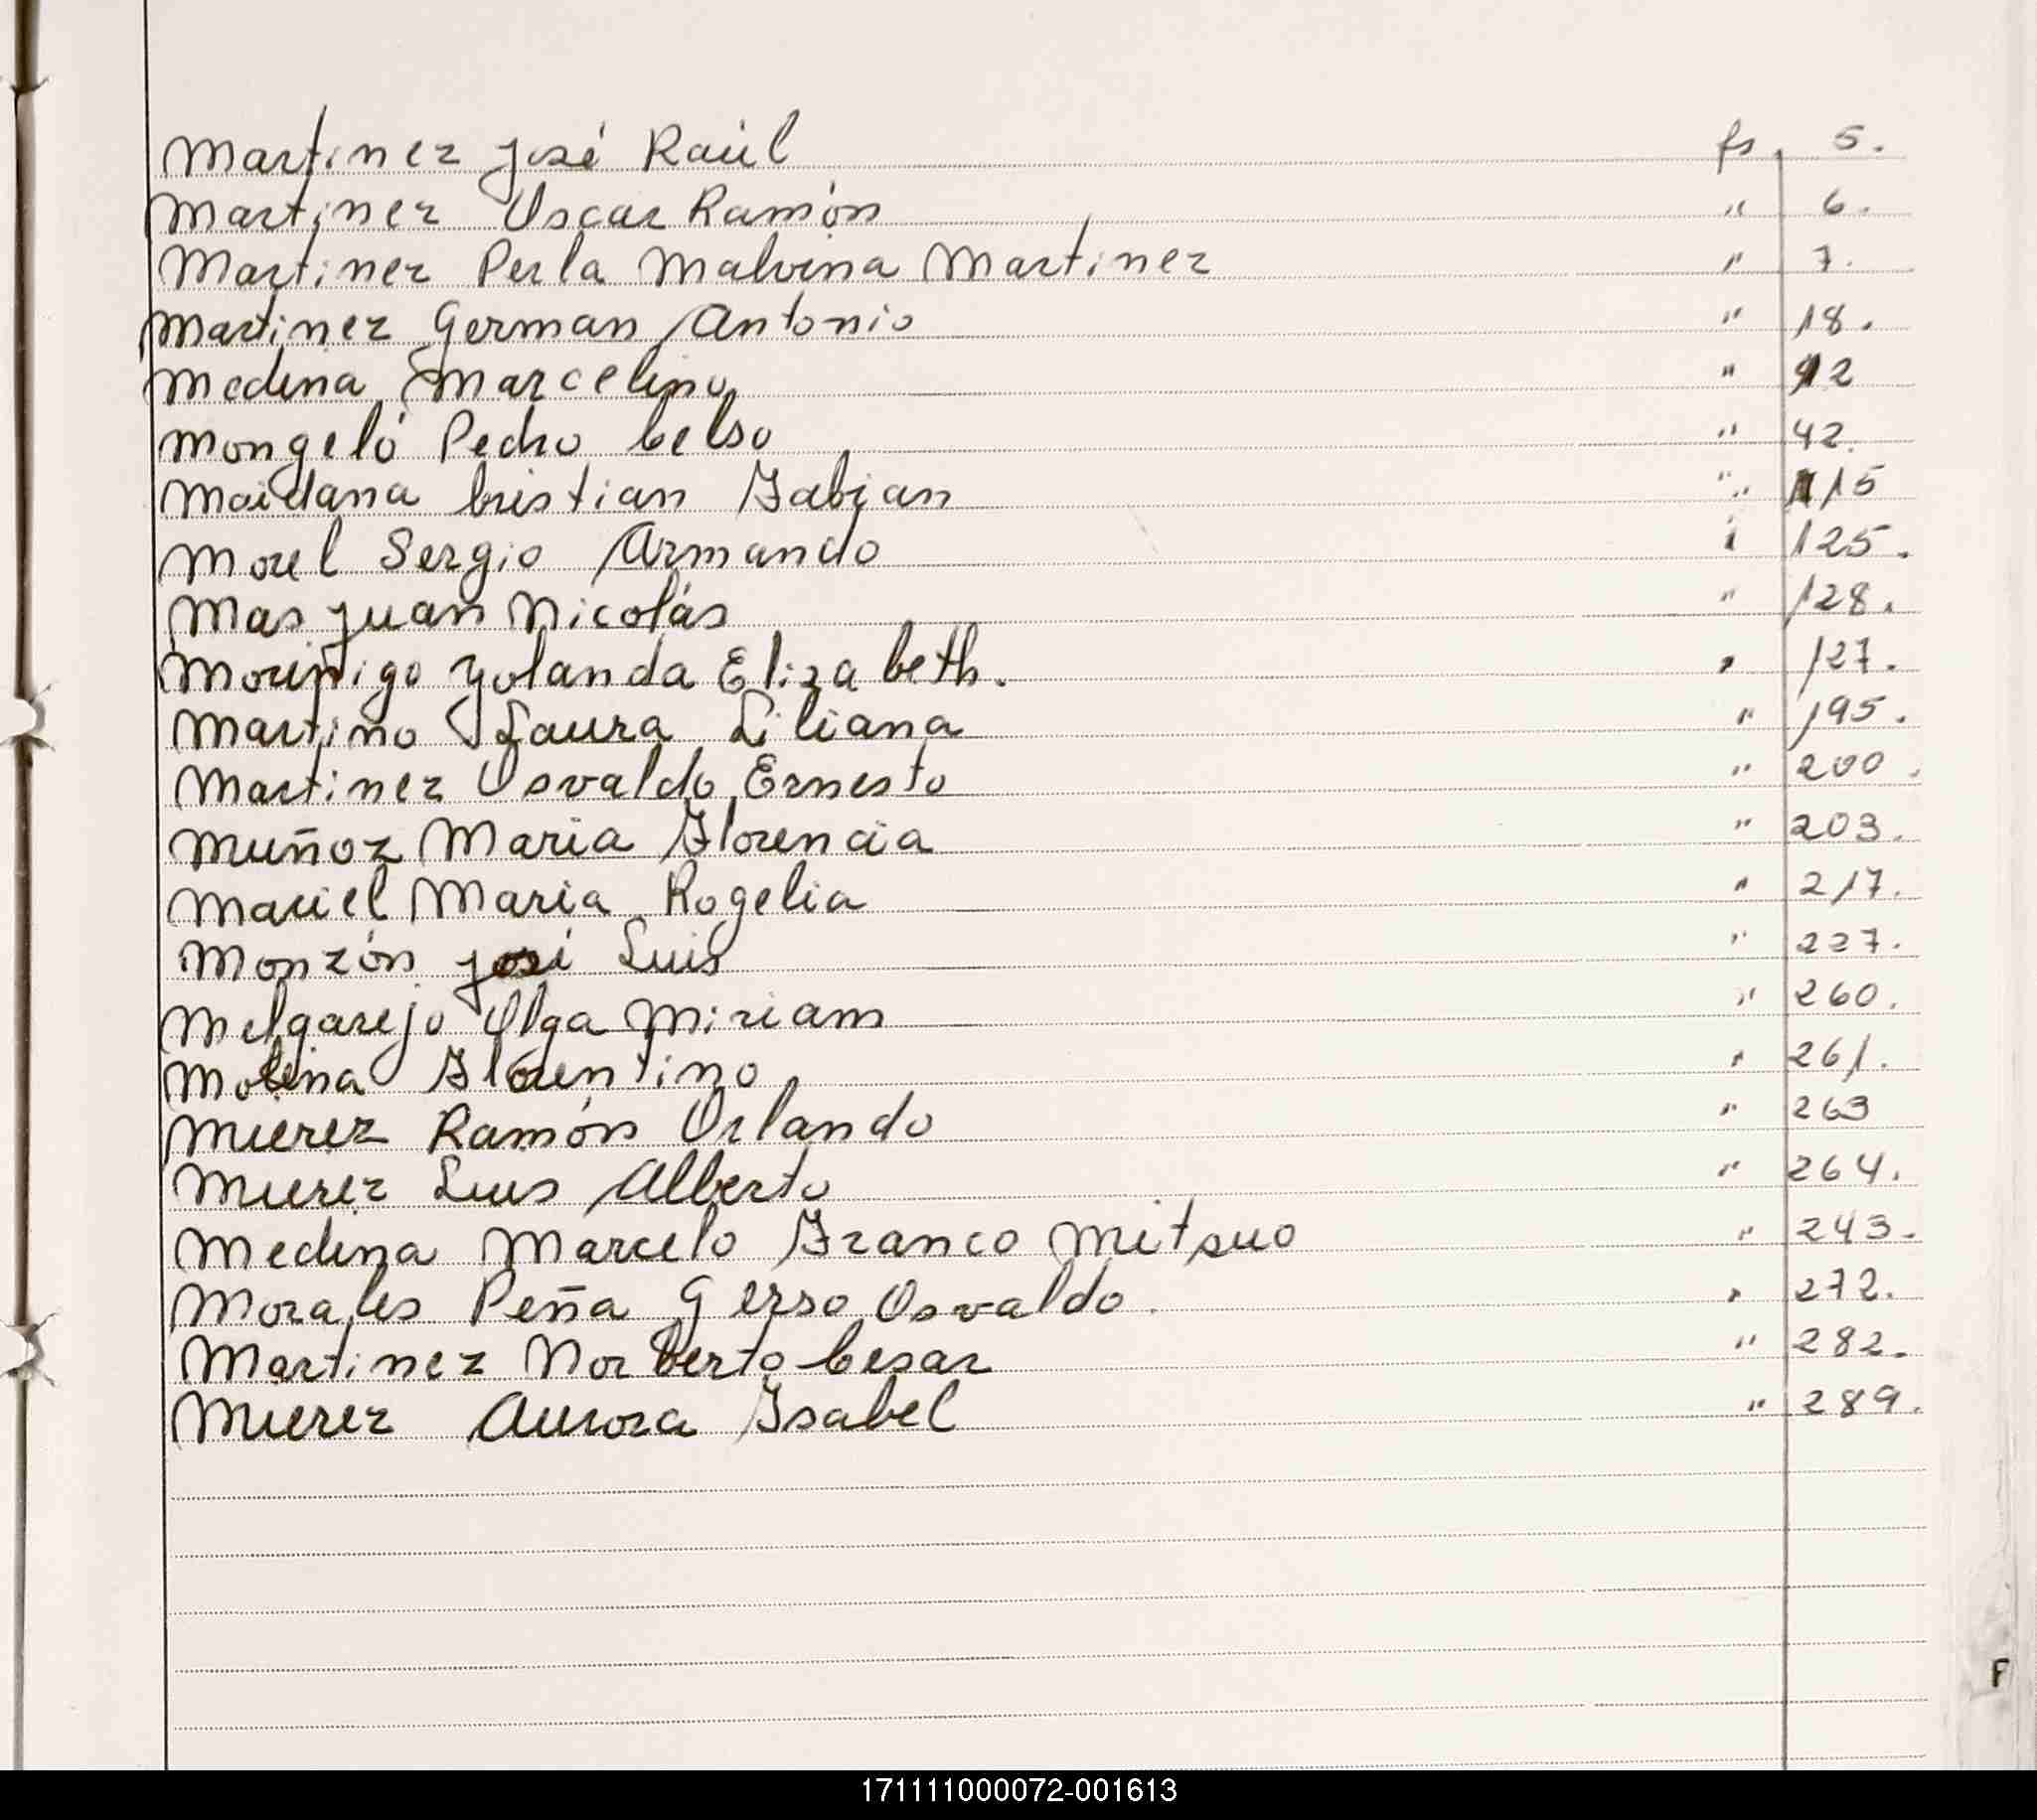 Martinez José Raúl fs. 5.
Martinez Oscar Ramón " 6.
Martinez Perla Malvina Martinez " 7.
Martinez German Antonio " 18.
Medina Marcelino " 12
Mongeló Pedro Celso " 42.
Maidana Cristian Fabian " 115
Morel Sergio Armando " 125.
Mas Juan Nicolás " 128.
Morinigo Yolanda Elizabeth. " 127.
Martino Laura Liliana " 195.
Martinez Osvaldo Ernesto " 200.
Muñoz Maria Florencia " 203.
Maciel Maria Rogelia " 217.
Monzón José Luis " 227.
Melgarejo Olga Miriam " 260.
Molina Florentino " 261.
Mierez Ramón Orlando " 263
Mierez Luis Alberto " 264.
Medina Marcelo Franco Mitsuo " 243.
Morales Peña Gerso Osvaldo. " 272.
Martinez Norberto Cesar " 282.
Mierez Aurora Isabel " 289.
F
171111000072-001613